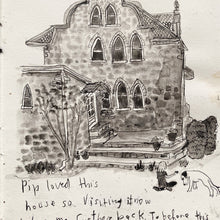 Pip loved this
house so. Visiting it now
back. To before the